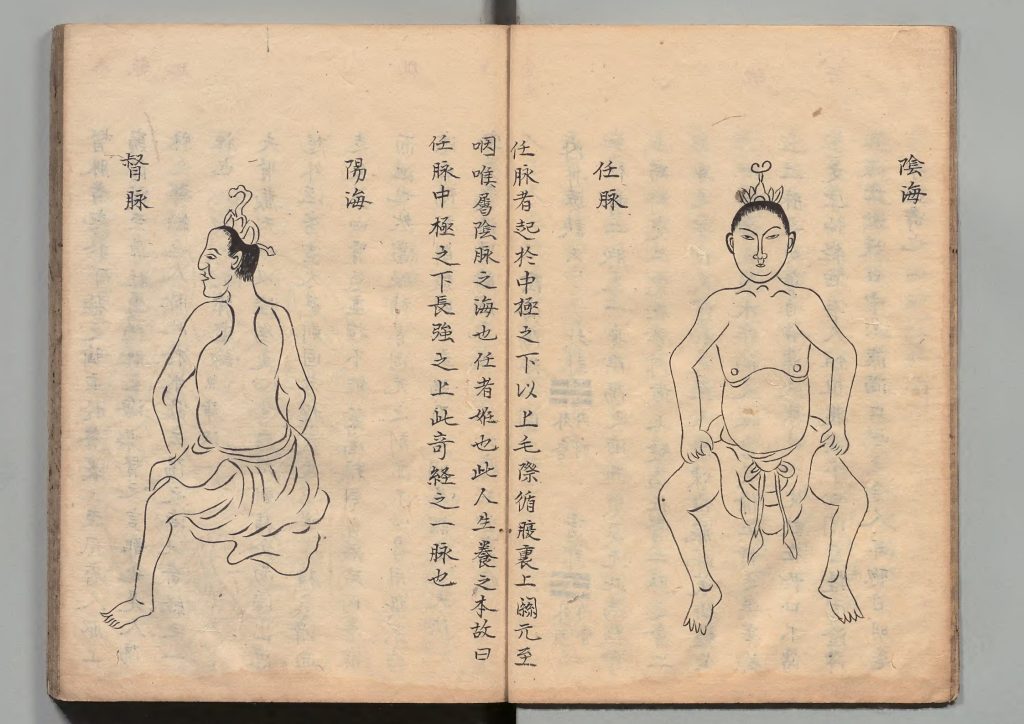 陰海
任脉
任脉者起扵中極之下以上毛際循腹裏上關元至
咽喉屬陰脉之海也任者姙也此人生養之本故曰
任脉中極之下長強之上此奇経之一脉也
陽海
督脉